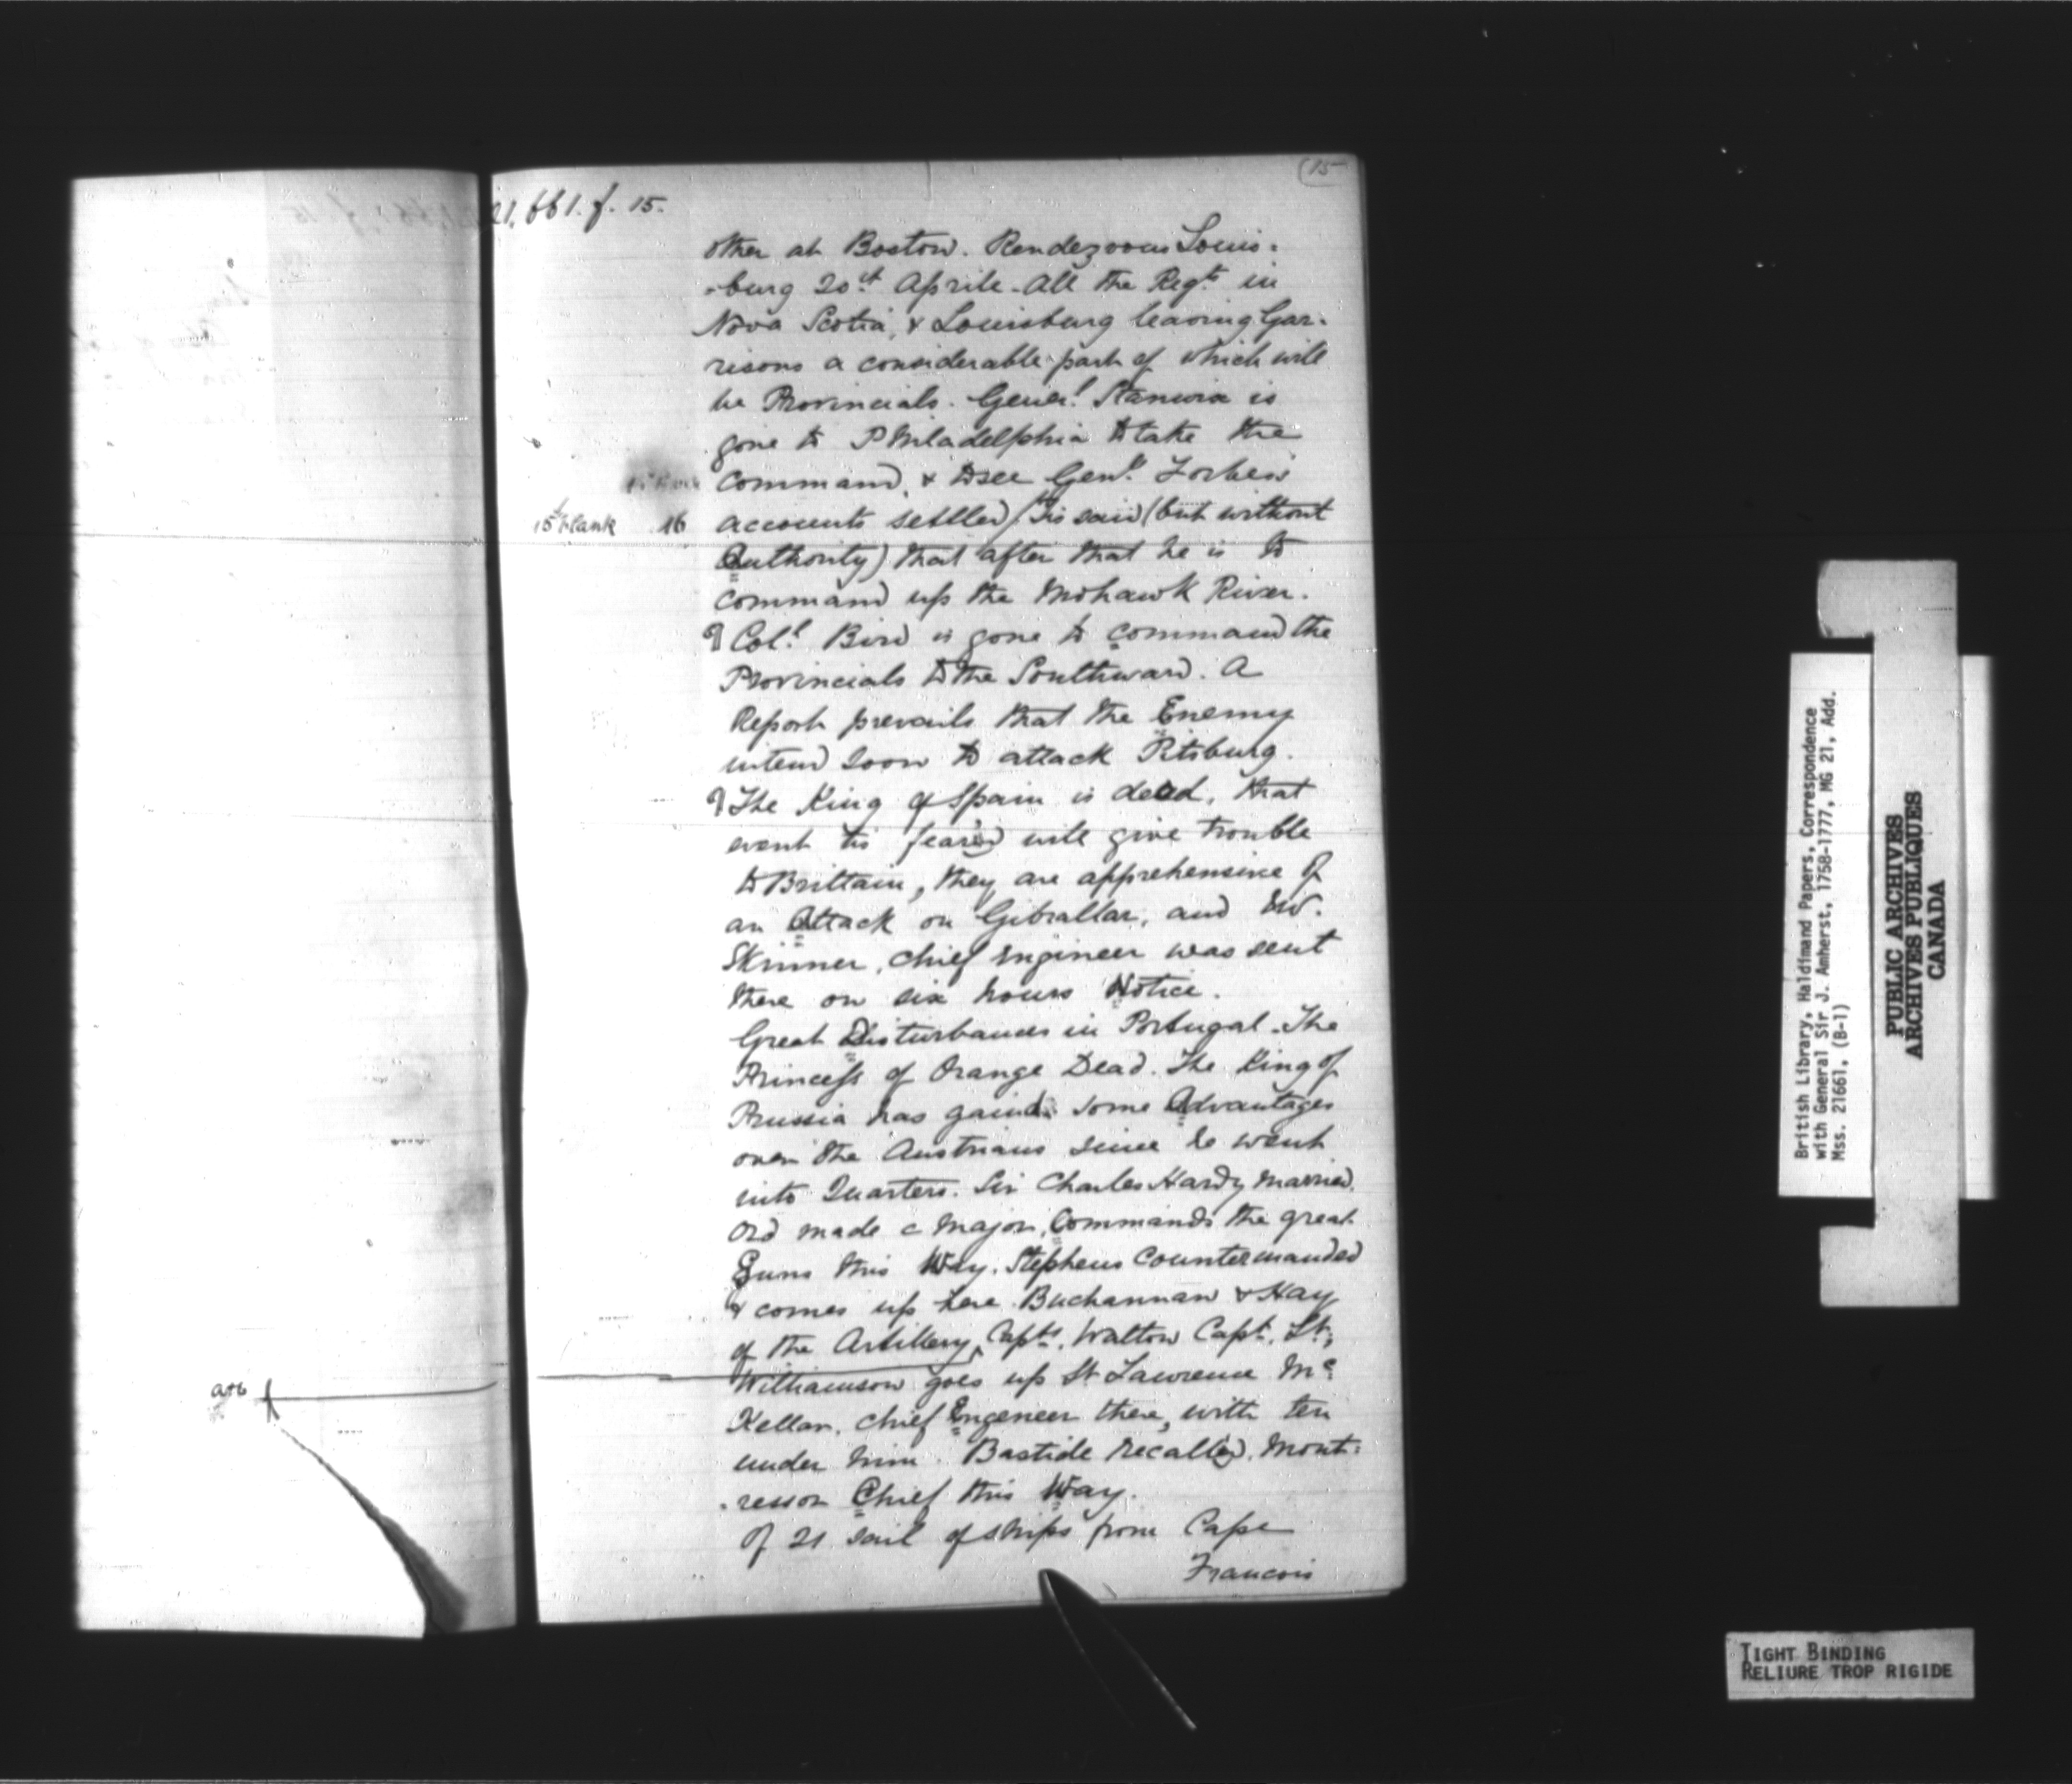 (15
21,661. f. 15.
other at Boston. Rendezvous Louis-
-burg 20st Aprile. All the Regts in
Nova Scotia, & Louisburg leaving Gar-
risons a considerable part of which will
be Provincials. Generl Stanwix is
gone to Philadelphia to take the
Command, & to see Genll Forbess
15b blank 16 accounts settled/ tis said (but without
Authority) that after that he is to
command up the Mohawk River.
Coll Bird is gone to command the
Provincials to the Southward. A
Report prevails that the Enemy
intend soon to attack Pitsburg.
The King of Spain is dead, that
event tis feared will give trouble
to Brittain, they are apprehensive of
an Attack on Gibraltar, and
Skinner, chief engineer was sent
there on six hours Notice.
Great Disturbances in Portugal. The
Princess of Orange Dead. The King of
Prussia has gaind some Advantages
over the Austrians since he went
into Quarters. Sir Charles Hardy married.
Ord made a Major, Commands the great
Guns this Way. Stephens Countermanded
& comes up here. Buchannan & Hay
of the Artillery, Capts. Walton Capt. Lt;
Williamson goes up St Lawrence Mc
Kellar, chief Engeneer there, with ten
under him. Bastide recalled. Mont-
-ressor Chief this Way.
Of 21 sail of ships from Cape
Francois
British Library, Haldimand Papers, Correspondence
with General Sir J. Amherst, 1758-1777, MG 21, Add.
Mss. 21661, (B-1)
PUBLIC ARCHIVES
ARCHIVES PUBLIQUES
CANADA
TIGHT BINDING
RELIURE TROP RIGIDE